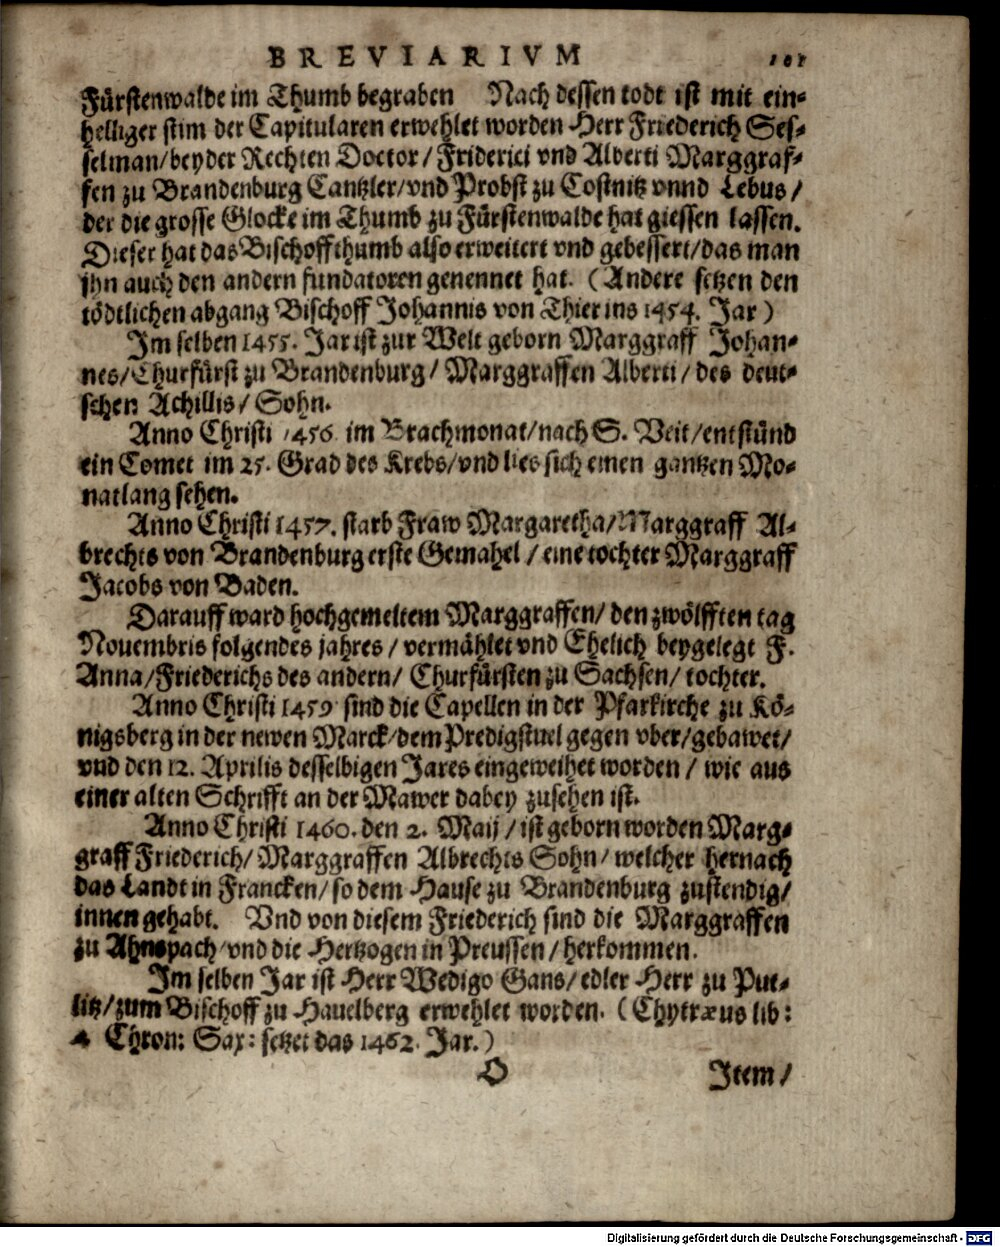 BREVIARIVM 101
Fürstenwalde im Thumb begraben Nach dessen todt ist mit ein-
helliger stim der Capitularen erwehlet worden Herr Friederich Ses-
selman/beyder Rechten Doctor/Friderici vnd Alberti Marggraf-
fen zu Brandenburg Cantzler/vnd Probst zu Costnitz vnnd Lebus/
der die grosse Glocke im Thumb zu Fürstenwalde hat giessen lassen.
Dieser hat das Bischoffthumb also erweitert vnd gebessert/das man
ihn auch den andern fundatoren genennet hat. (Andere setzen den
tödtlichen abgang Bischoff Johannis von Thier ins 1454. Jar)
Im selben 1455. Jar ist zur Welt geborn Marggraff Johan-
nes/Churfürst zu Brandenburg/Marggraffen Alberti/des deut-
schen Achillis/Sohn.
Anno Christi 1456 im Brachmonat/nach S. Veit/entstünd
ein Comet im 25. Grad des Krebs/vnd lies sich einen gantzen Mo-
natlang sehen.
Anno Christi 1457. starb Fraw Margaretha/Marggraff Al-
brechts von Brandenburg erste Gemahel/eine tochter Marggraff
Jacobs von Baden.
Darauff ward hochgemeltem Marggraffen/den zwölfften tag
Nouembris folgendes jahres/vermählet vnd Ehelich beygelegt F.
Anna/Friederichs des andern/Churfürsten zu Sachsen/tochter.
Anno Christi 1459 sind die Capellen in der Pfarkirche zu Kö-
nigsberg in der newen Marck/dem Predigstuel gegen vber/gebawet/
vnd den 12. Aprilis desselbigen Jares eingeweihet worden/wie aus
einer alten Schrifft an der Mawer dabey zusehen ist.
Anno Christi 1460. den 2. Maij/ist geborn worden Marg-
graff Friederich/Marggraffen Albrechts Sohn/welcher hernach
das Landt in Francken/so dem Hause zu Brandenburg zustendig/
innen gehabt. Vnd von diesem Friederich sind die Marggraffen
zu Ahnspach/vnd die Hertzogen in Preussen/herkommen.
Im selben Jar ist Herr Wedigo Gans/edler Herr zu Put-
litz/zum Bischoff zu Hauelberg erwehlet worden. (Chytræus lib:
4 Chron: Sax: setzet das 1462. Jar.)
O Item/
Digitalisierung gefördert durch die Deutsche Forschungsgemeinschaft - DFG